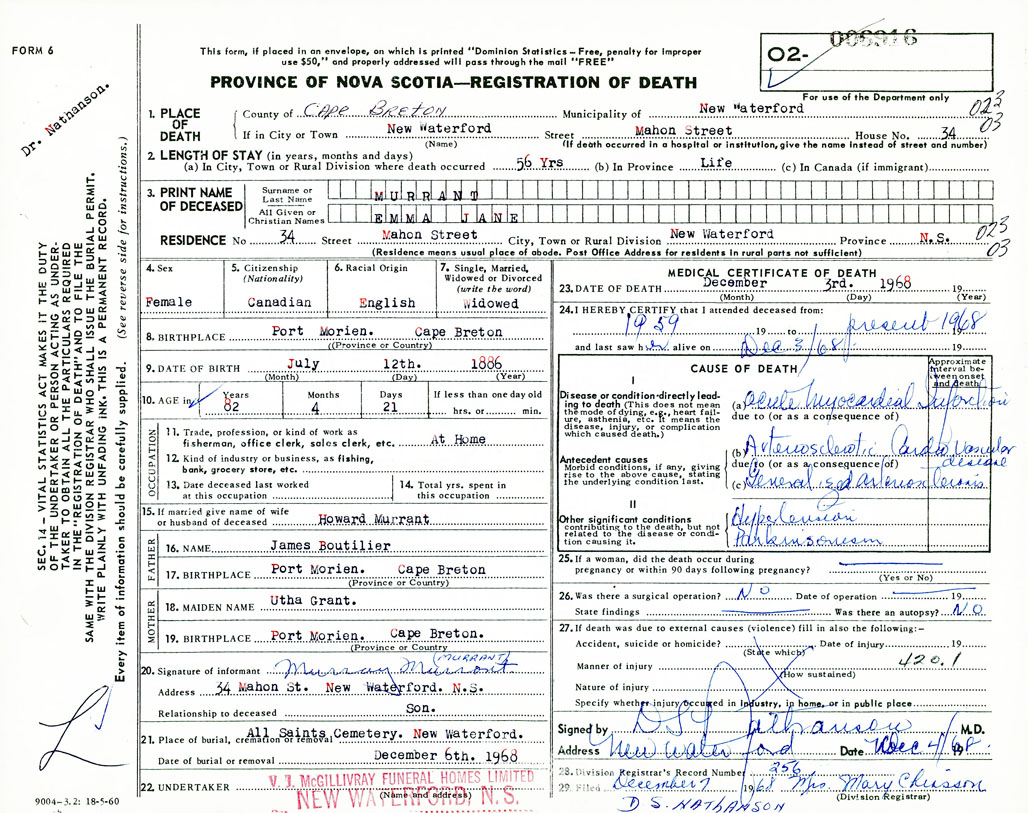 FORM 6
Dr. Nathanson.
SEC. 14— VITAL STATISTICS ACT MAKES IT THE DUTY
OF THE UNDERTAKER OR PERSON ACTING AS UNDER-
TAKER TO OBTAIN ALL THE PARTICULARS REQUIRED
IN THE "REGISTRATION OF DEATH" AND TO FILE THE
SAME WITH THE DIVISION REGISTRAR WHO SHALL ISSUE THE BURIAL PERMIT.
WRITE PLAINLY WITH UNFADING INK. THIS IS A PERMANENT RECORD.
Every item of information should be carefully supplied. (See reverse side for instructions.)
9004-3.2: 18-5-60
This form, if placed in an envelope, on which is printed "Dominion Statistics – Free, penalty for improper
use $50," and properly addressed will pass through the mail "FREE"
PROVINCE OF NOVA SCOTIA—REGISTRATION OF DEATH
02- 006916
For use of the Department only
023
03
1. PLACE OF DEATH
County of CAPE BRETON Municipality of New Waterford
If in City or Town New Waterford Street Mahon Street House No. 34
(Name) (If death occurred in a hospital or institution, give the name instead of street and number)
2. LENGTH OF STAY (in years, months and days)
(a) In City, Town or Rural Division where death occurred 56 Yrs (b) In Province Life (c) In Canada (if immigrant)
3. PRINT NAME OF DECEASED
Surname or Last Name MURRANT
All Given or Christian Names EMMA JANE
RESIDENCE No 34 Street Mahon Street City, Town or Rural Division New Waterford Province N.S.
023
03
(Residence means usual place of abode. Post Office Address for residents in rural parts not sufficient)
4. Sex
Female
5. Citizenship
(Nationality)
Canadian
6. Racial Origin
English
7. Single, Married,
Widowed or Divorced
(write the word)
Widowed
8. BIRTHPLACE Port Morien. Cape Breton
(Province or Country)
9. DATE OF BIRTH July 12th. 1886
(Month) (Day) (Year)
10. AGE in Years 82 Months 4 Days 21 If less than one day old
hrs. or min.
OCCUPATION
11. Trade, profession, or kind of work as
fisherman, office clerk, sales clerk, etc. At Home
12. Kind of industry or business, as fishing,
bank, grocery store, etc.
13. Date deceased last worked
at this occupation
14. Total yrs. spent in
this occupation
15. If married give name of wife
or husband of deceased Howard Murrant
FATHER
16. NAME James Boutilier
17. BIRTHPLACE Port Morien. Cape Breton
(Province or Country)
MOTHER
18. MAIDEN NAME Utha Grant.
19. BIRTHPLACE Port Morien. Cape Breton.
(Province or Country)
(MURRANT)
20. Signature of informant Murray Murrant
Address 34 Mahon St. New Waterford. N.S.
Relationship to deceased Son.
21. Place of burial, cremation or removal All Saints Cemetery. New Waterford.
Date of burial or removal December 6th. 1968
22. UNDERTAKER V. J. McGILLIVRAY FUNERAL HOMES LIMITED
(Name and address)
NEW WATERFORD, N. S.
MEDICAL CERTIFICATE OF DEATH
23. DATE OF DEATH December 3rd. 1968 19
(Month) (Day) (Year)
24. I HEREBY CERTIFY that I attended deceased from:
1959 19 to present 1968
and last saw her alive on Dec 3/68 19
CAUSE OF DEATH
Approximate
interval be-
tween onset
and death
I
Disease or condition directly lead-
ing to death (This does not mean
the mode of dying, e.g., heart fail-
ure, asthenia, etc. It means the
disease, injury, or complication
which caused death.)
(a) Acute Myocardial Infarction
due to (or as a consequence of)
(b) Arteriosclerotic Cardio Vascular
disease
Antecedent causes
Morbid conditions, if any, giving
rise to the above cause, stating
the underlying condition last.
due to (or as a consequence of)
(c) Generalized Arteriosclerosis
II
Other significant conditions
contributing to the death, but not
related to the disease or condi-
tion causing it.
Hypertension
Parkinsonism
25. If a woman, did the death occur during
pregnancy or within 90 days following pregnancy?
(Yes or No)
26. Was there a surgical operation? NO Date of operation 19
State findings Was there an autopsy? NO
27. If death was due to external causes (violence) fill in also the following:–
Accident, suicide or homicide? Date of injury 19
(State which)
420.1
Manner of injury
(How sustained)
Nature of injury
Specify whether injury occurred in Industry, in home, or in public place
Signed by D S Nathanson M.D.
Address New Waterford Date Dec 4/68 19
28. Division Registrar's Record Number 256
29. Filed December 7 1968 Mrs Mary Chiasson
(Division Registrar)
D S. NATHANSON